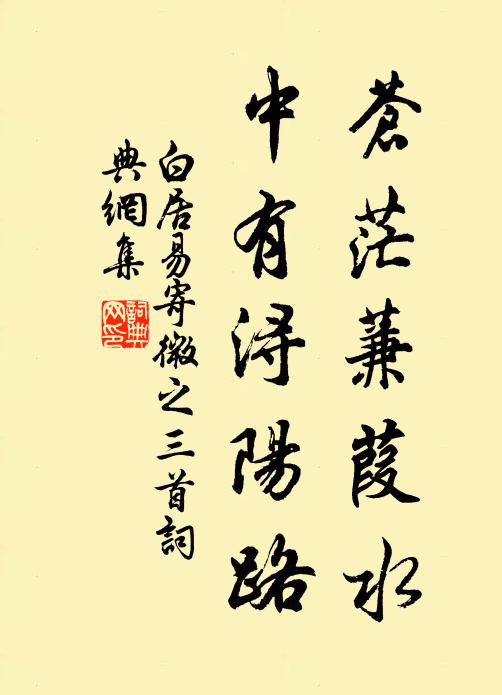 蒼茫蒹葭水
中有浔陽路
白居易寄微之三首詞
典網集
詞典
网印